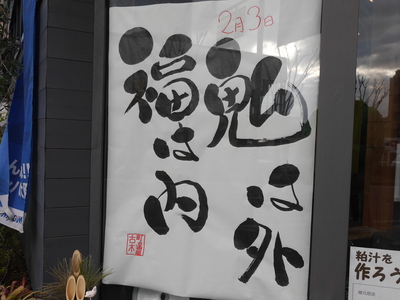 2月3日
鬼は外
福は内
粕汁を
作ろう